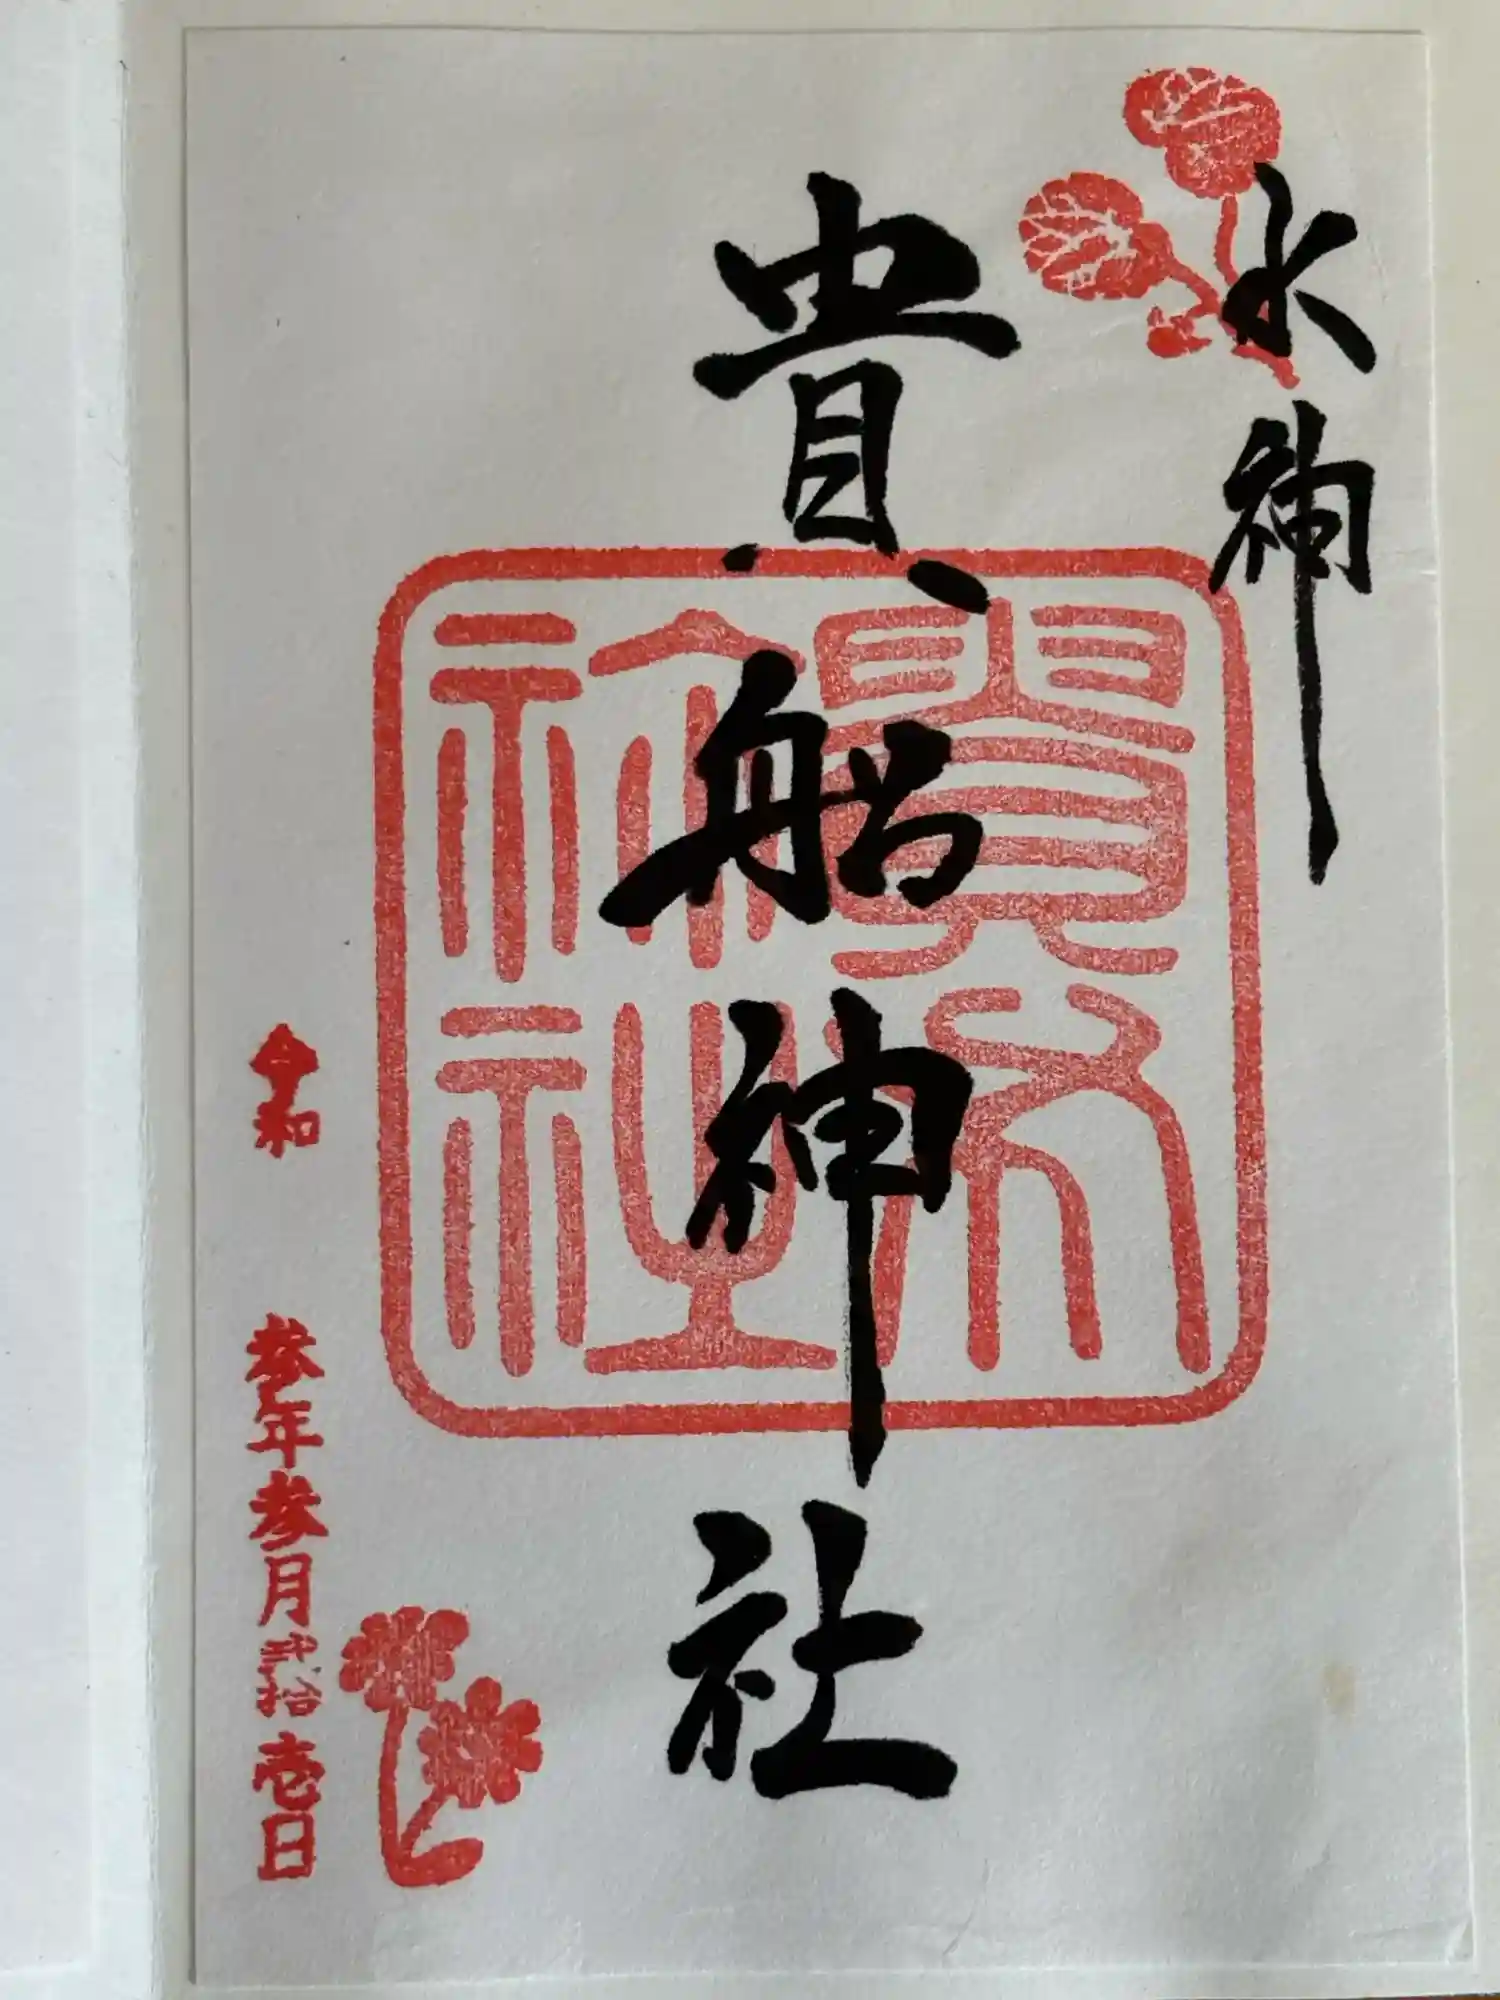 水神
貴船神社
貴布祢社
令和 参年参月弐拾壱日